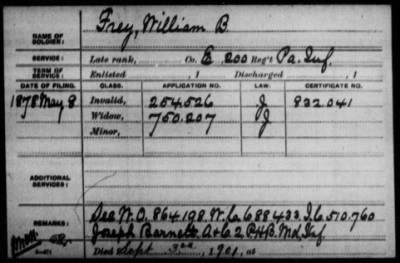 NAME OF SOLDIER: Frey, William B.
SERVICE: Late rank, Co. E, 200 Reg't Pa. Inf.
TERM OF SERVICE: Enlisted , 1 Discharged , 1
DATE OF FILING. CLASS. APPLICATION NO. LAW. CERTIFICATE NO.
1878 May 8 Invalid, 254.526 J 832.041
Widow, 750.207 J
Minor,
ADDITIONAL SERVICES:
REMARKS: See W.O. 864,198. W.C. 688433. I.C. 510.760
Joseph Barnett. A + G 2 P.H.B. Md. Inf.
Died Sept 3rd, 1901, at